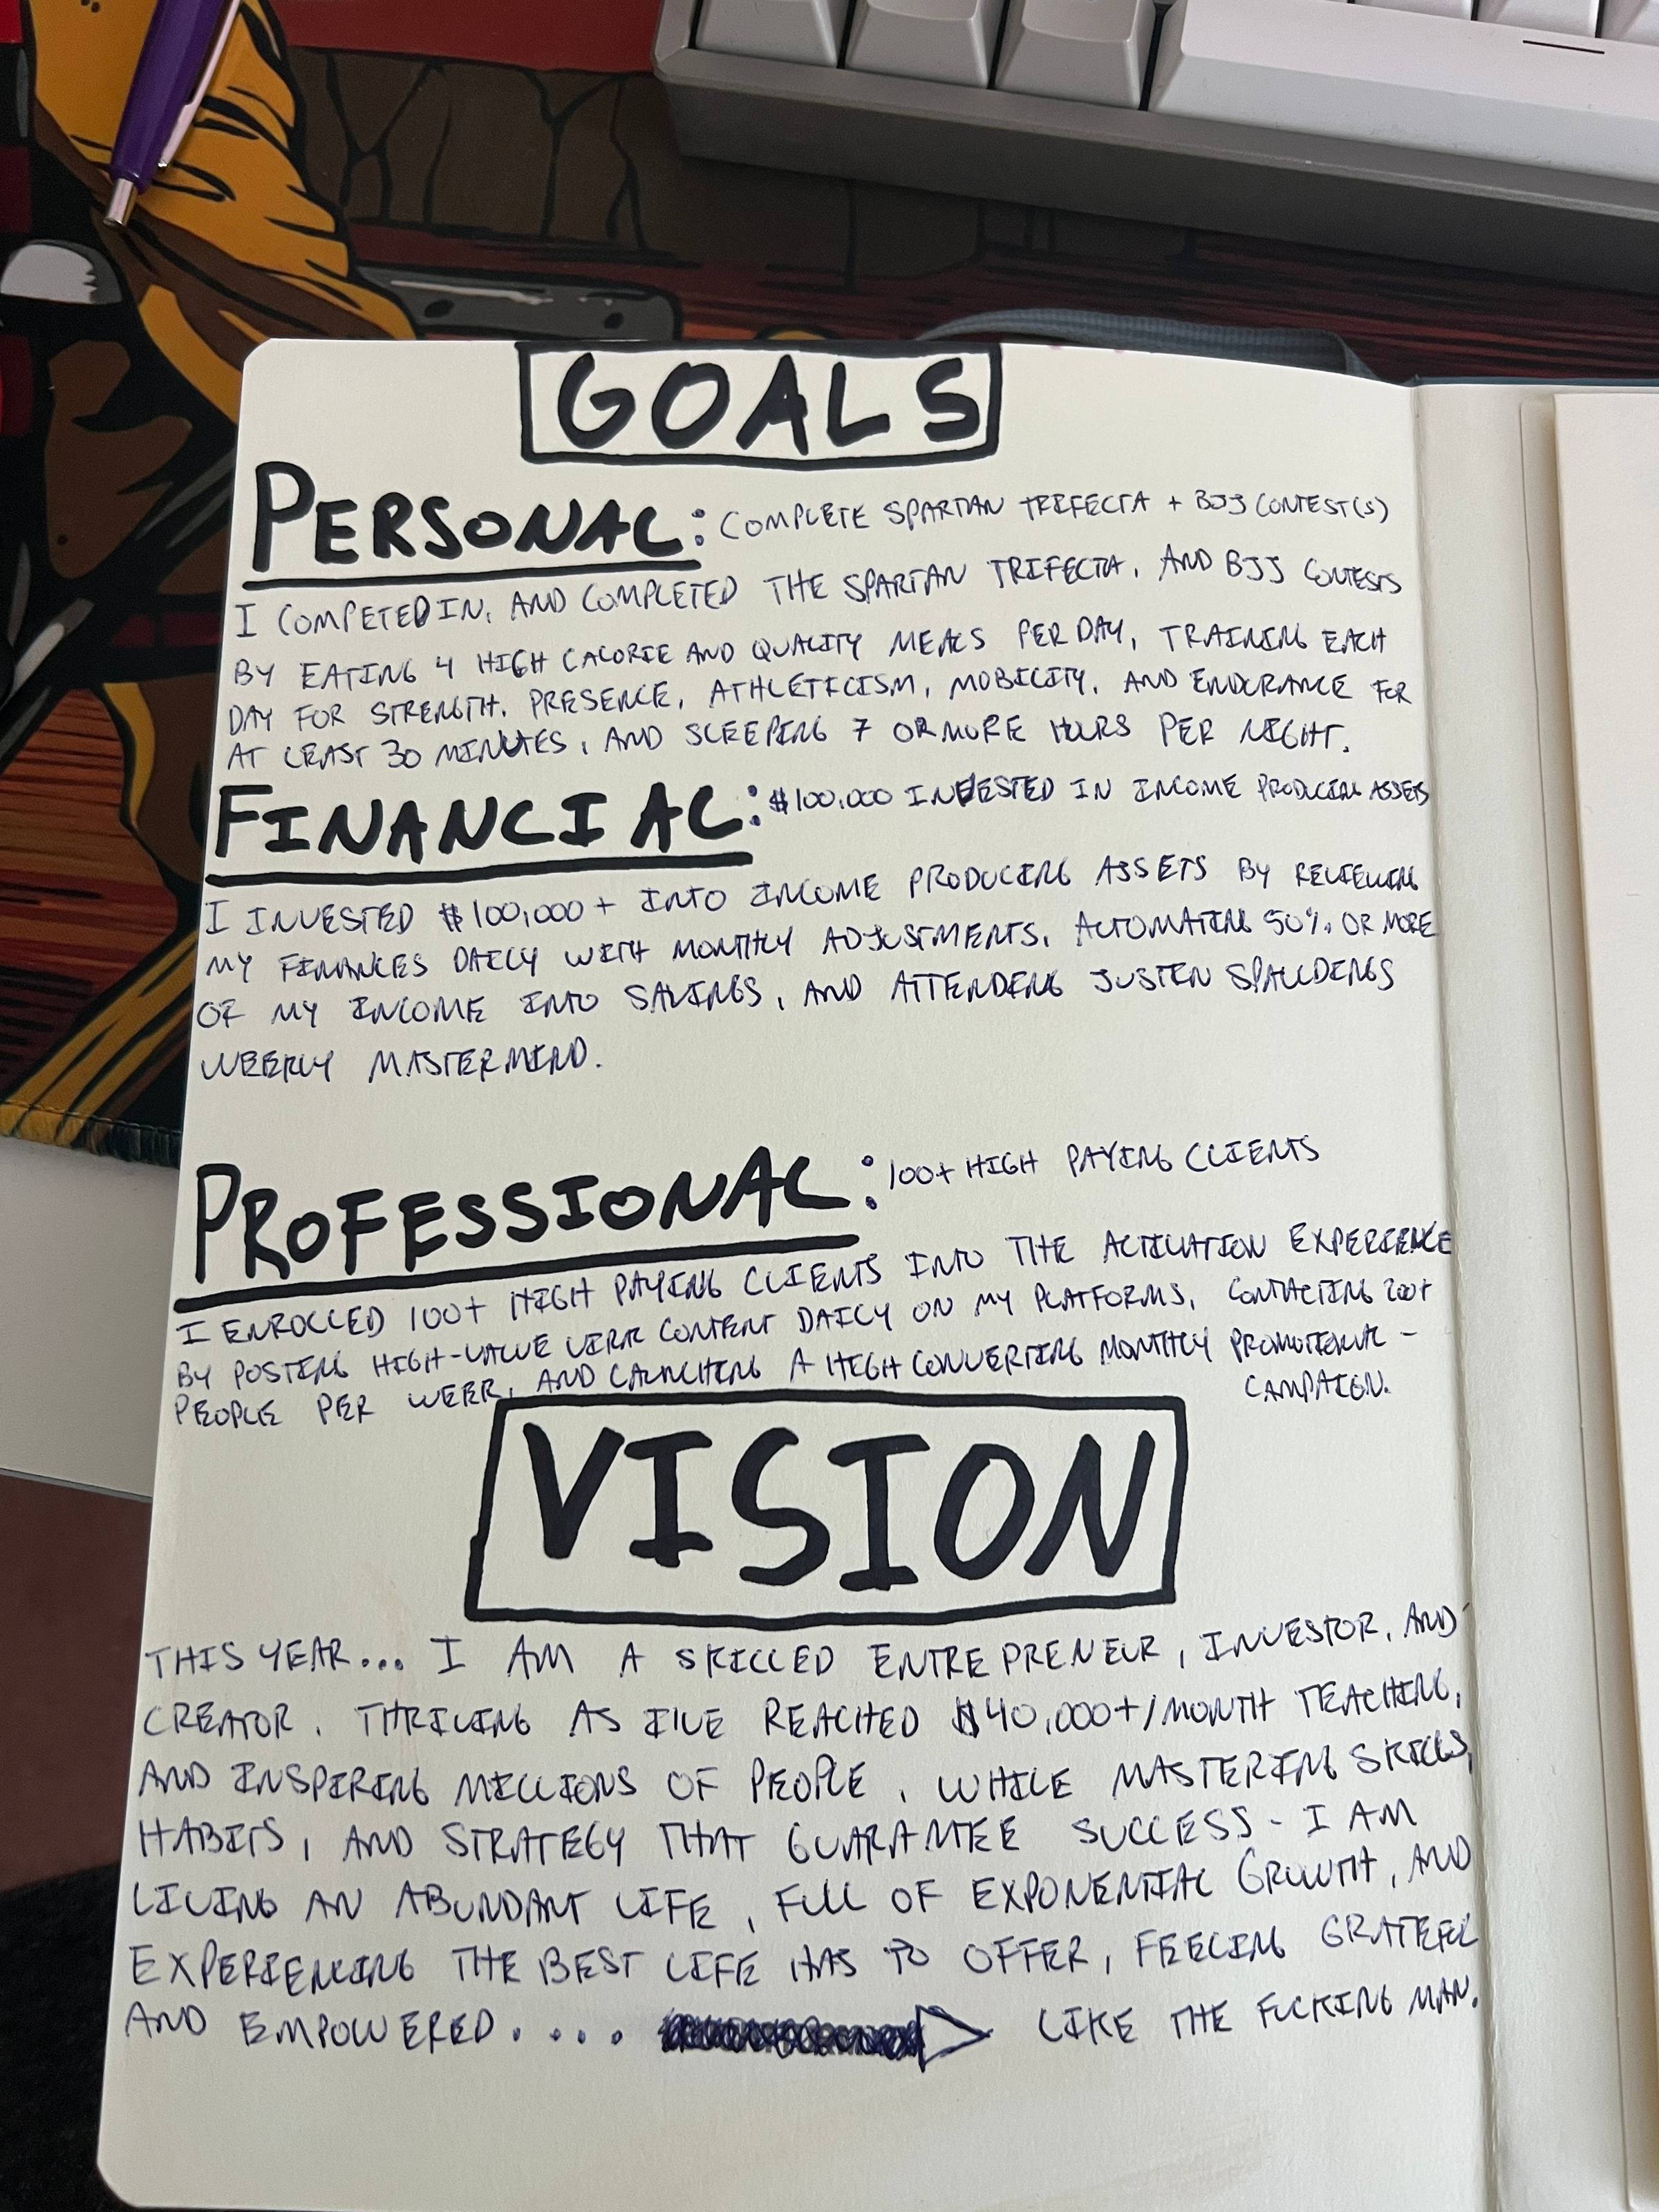 GOALS
PERSONAL: COMPLETE SPARTAN TRIFECTA + BJJ CONTEST(S)
I COMPETED IN, AND COMPLETED THE SPARTAN TRIFECTA, AND BJJ CONTESTS
BY EATING 4 HIGH CALORIE AND QUALITY MEALS PER DAY, TRAINING EACH
DAY FOR STRENGTH, PRESENCE, ATHLETICISM, MOBILITY, AND ENDURANCE FOR
AT LEAST 30 MINUTES, AND SLEEPING 7 OR MORE HOURS PER NIGHT.
FINANCIAL: $100,000 INVESTED IN INCOME PRODUCING ASSETS
I INVESTED $100,000+ INTO INCOME PRODUCING ASSETS BY REVIEWING
MY FINANCES DAILY WITH MONTHLY ADJUSTMENTS, AUTOMATING 50% OR MORE
OF MY INCOME INTO SAVINGS, AND ATTENDING JUSTIN SPAULDINGS
WEEKLY MASTERMIND.
PROFESSIONAL: 100+ HIGH PAYING CLIENTS
I ENROLLED 100+ HIGH PAYING CLIENTS INTO THE ACTIVATION EXPERIENCE
BY POSTING HIGH-VALUE VIRAL CONTENT DAILY ON MY PLATFORMS, CONTACTING 200+
PEOPLE PER WEEK, AND LAUNCHING A HIGH CONVERTING MONTHLY PROMOTIONAL -
CAMPAIGN.
VISION
THIS YEAR... I AM A SKILLED ENTREPRENEUR, INVESTOR, AND
CREATOR. THRIVING AS I'VE REACHED $40,000+/MONTH TEACHING,
AND INSPIRING MILLIONS OF PEOPLE, WHILE MASTERING SKILLS,
HABITS, AND STRATEGY THAT GUARANTEE SUCCESS - I AM
LIVING AN ABUNDANT LIFE, FULL OF EXPONENTIAL GROWTH, AND
EXPERIENCING THE BEST LIFE HAS TO OFFER, FEELING GRATEFUL
AND EMPOWERED.... LIKE THE FUCKING MAN.